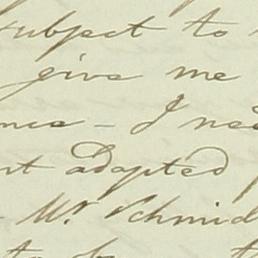 subject to
give me
nce - I nee
nt adapted
Mr. Schmid
to be